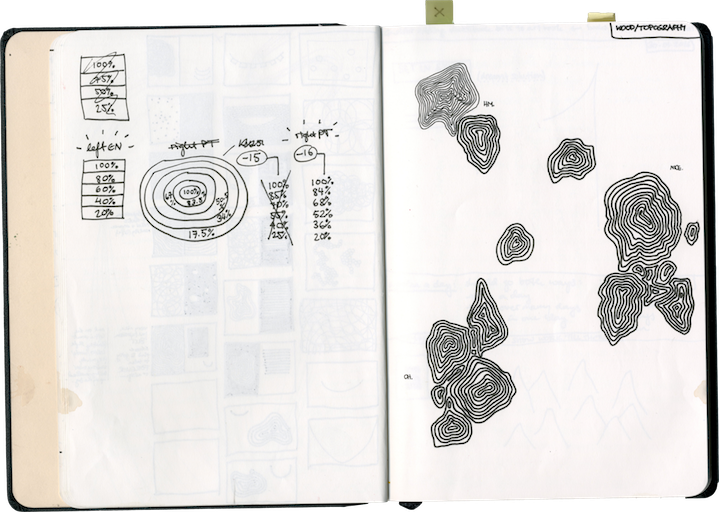 100%
45%
50%
25%
left EN
100%
80%
60%
40%
20%
right PT
-15
100%
82.5
34%
17.5%
100%
85%
70%
55%
40%
25%
right PT
-16
100%
84%
68%
52%
36%
20%
WOOD/TOPOGRAPHY
HM.
NICE.
OH.